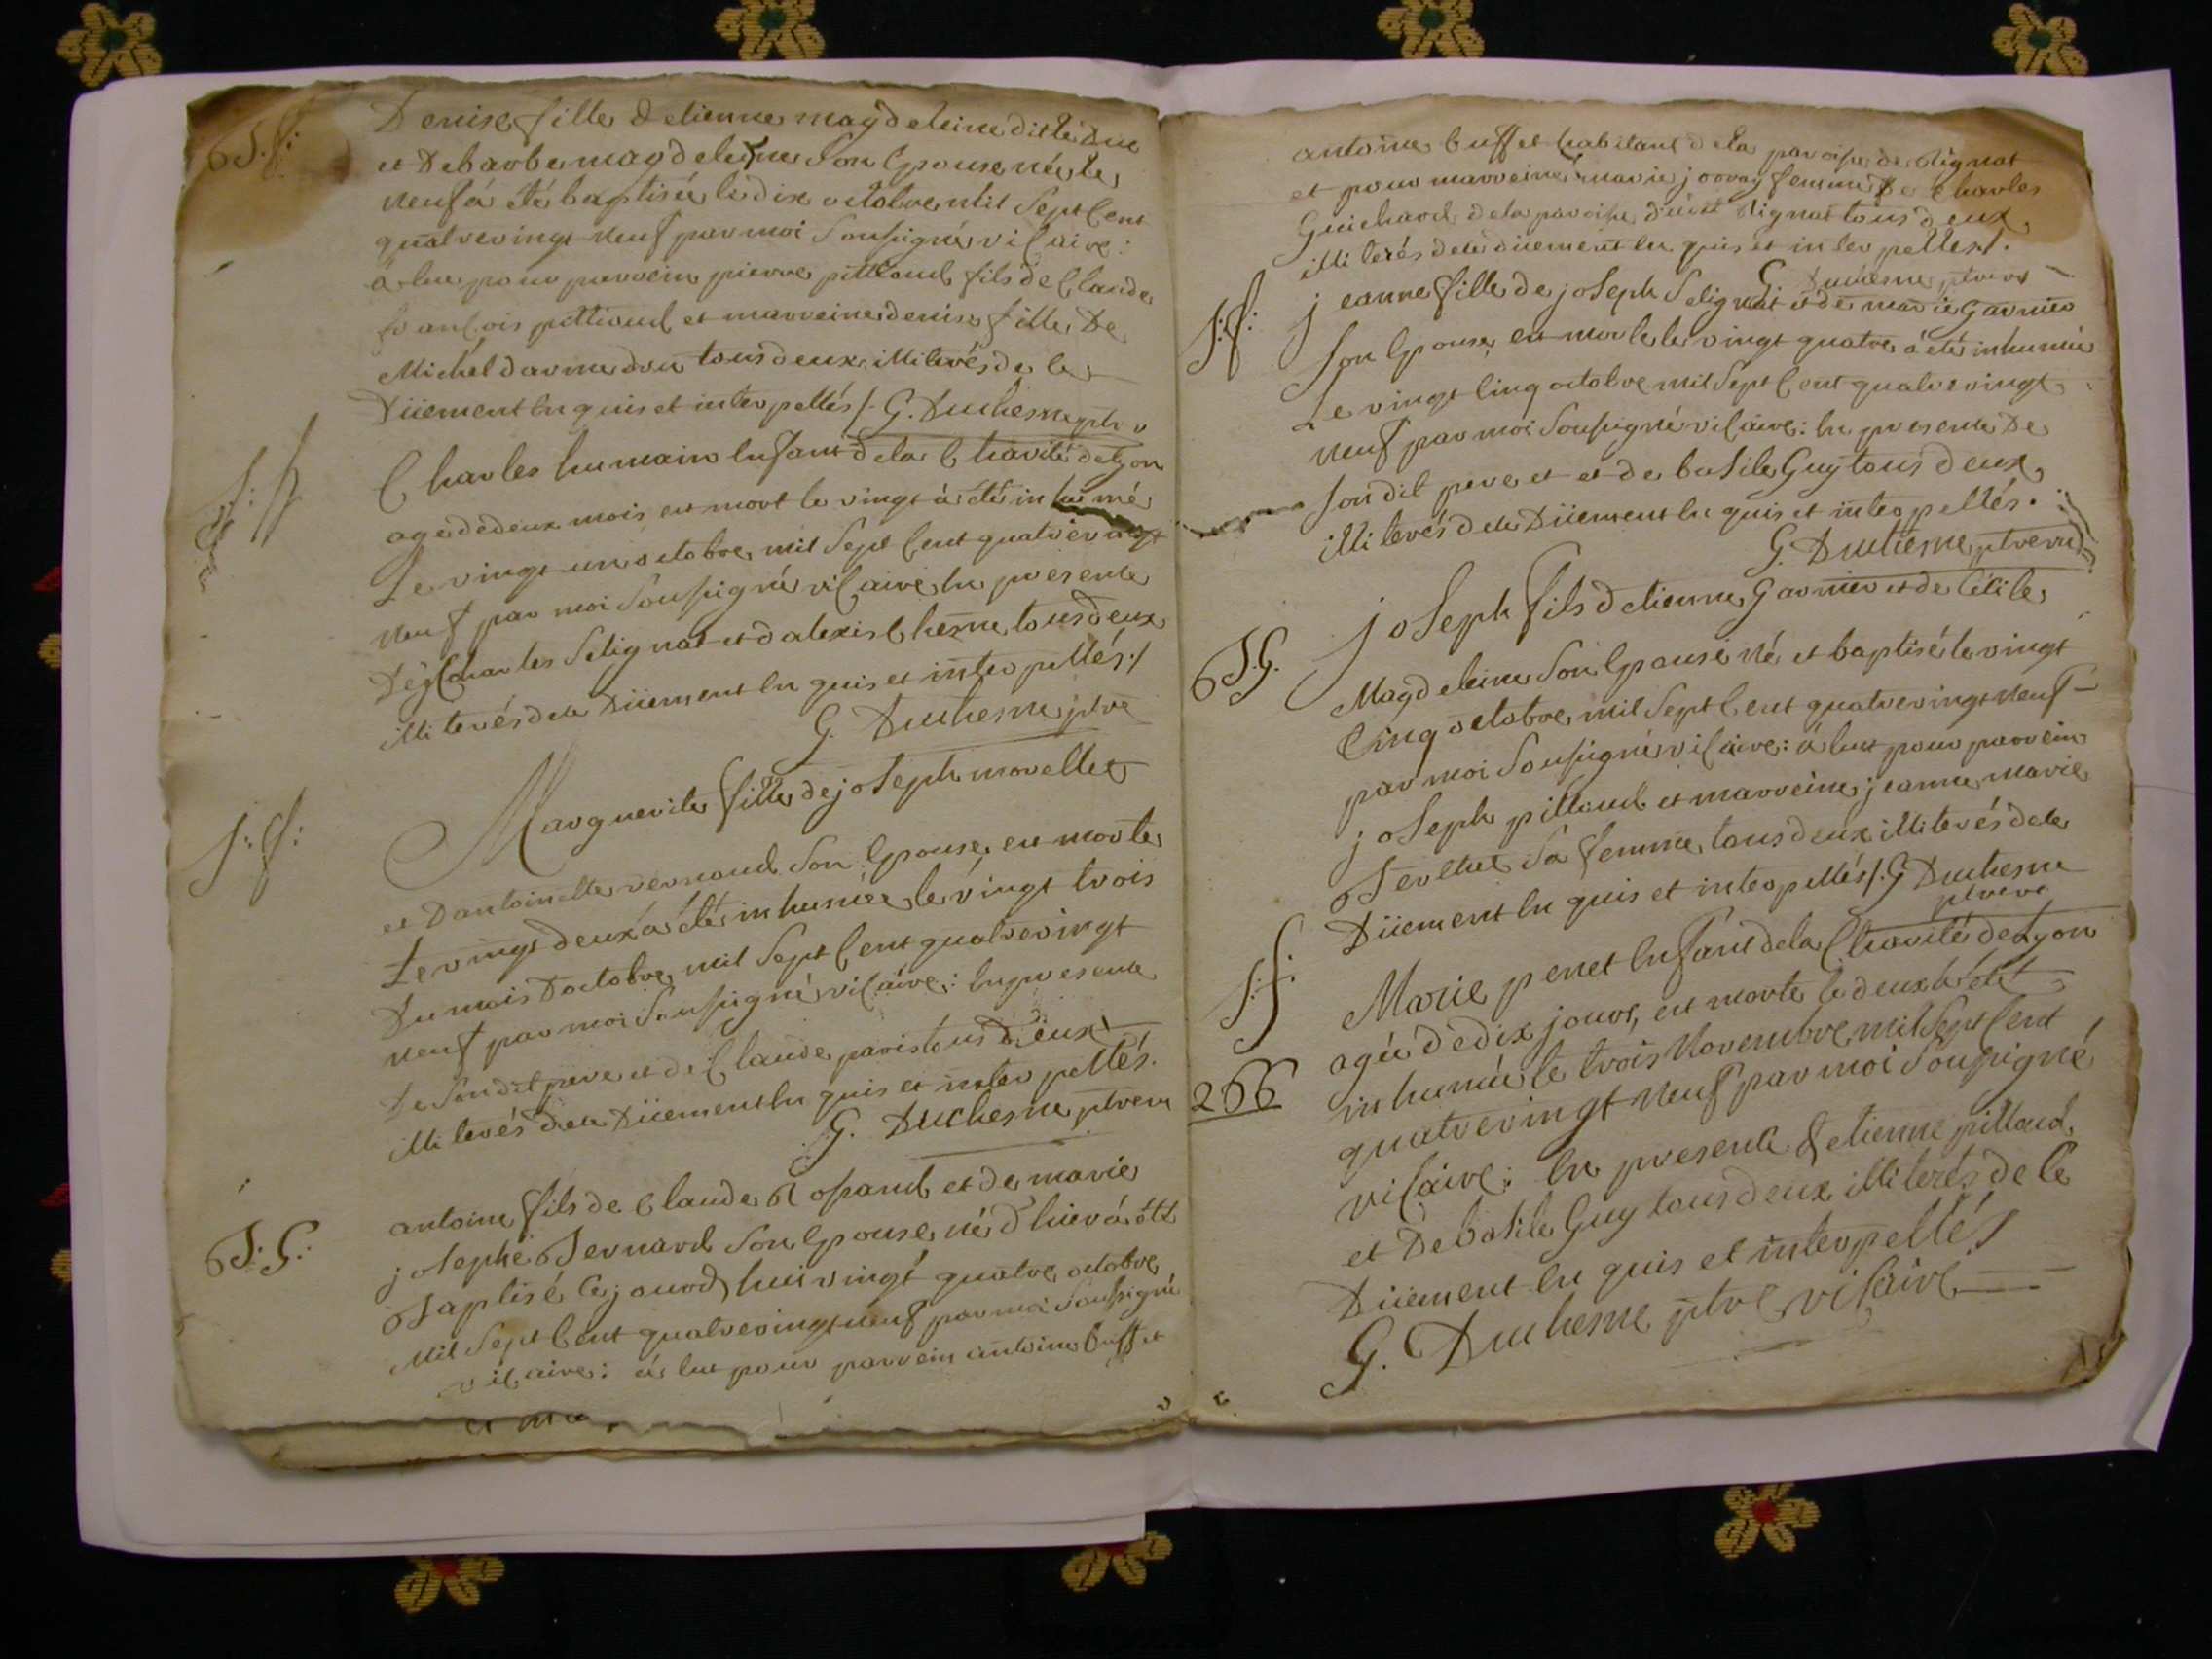 B.f:
Denise fille detienne magdeleine dit le Duc
et De barbe magdeleine son Epouse née le
neuf á été baptisée le dix octobre mil Sept Cent
quatrevingt neuf par moi Soussigné viCaire:
a Eue pour parrein pierre pittioud fils de Claude
franCois pittioud et marreine denise fille De
Michel darmedon tous deux illiterés de Ce
Düement En quis et interpellés /. G. Duchesne ptre v
S: h
Charles humain Enfant de la Charité de Lyon
agé de deux mois est mort le vingt á été inhumé
Le vingt un octobre mil Sept Cent quatrevingt
neuf par moi Soussigné viCaire En presence
De Charles Selignat et d alexis Chesne tous deux
illiterés de Ce Düement En quis et interpellés ./
G. Duchesne ptre
S: f:
Marguerite fille de joSeph morellet
et D antoinette vernoud Son Epouse est morte
Le vingt deux á été inhumée le vingt trois
Du mois D octobre mil Sept Cent quatrevingt
neuf par moi Soussigné viCaire: En presence
De Son dit pere et de Claude paris tous deux
illiterés de Ce Düement En quis et interpellés.
G. Duchesne ptre vi
B: G:
antoine fils de Claude Rosand et de marie
josephe Bernard Son Epouse né d hier á été
Baptisé Ce jourd huis vingt quatre octobre
Mil Sept Cent quatrevingt neuf par moi Soussigné
viCaire: á Eut pour parrein antoine buffet
et ma
antoine buffet habitant de la paroisse de Rignat
et pour marreine marie jorray femme De Charles
Guichard de la paroisse dudit Rignat tous deux
illiterés de Ce düement En quis et interpellés /.
G. Duchesne ptre vi
S: f:
jeanne fille de joSeph Selignat et de marie Garnier
Son Epouse est morte le vingt quatre á été inhumée
Le vingt Cinq octobre mil Sept Cent quatrevingt
neuf par moi Soussigné viCaire: En presence De
Son dit pere et et de baSile Guy tous deux
illiterés de Ce Düement En quis et interpellés.
G. Duchesne ptre vi
B.G.
joSeph fils detienne Garnier et de CéCile
Magdeleine Son Epouse né et baptisé le vingt
Cinq octobre mil Sept Cent quatrevingt neuf
par moi Soussigné viCaire: á Eut pour parrein
joSeph pittioud et marreine jeanne marie
Berthet Sa femme tous deux illiterés de Ce
Düement En quis et interpellés /. G Duchesne
ptre vi
S: f.
Marie penet Enfant de la Charité de Lyon
agée de dix jours, est morte le deux á été
inhumée le trois Novembre mil Sept Cent
266
quatrevingt neuf par moi Soussigné
viCaire: En presence detienne pittioud
et De baSile Guy tous deux illiterés de Ce
Düement En quis et interpellés /
G. Duchesne ptre viCaire